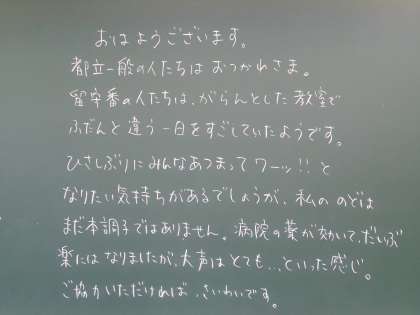 おはようございます。
都立一般の人たちは おつかれさま。
留守番の人たちは、がらんとした教室で
ふだんと違う一日をすごしていたようです。
ひさしぶりにみんなあつまってワーッ!! と
なりたい気持ちがあるでしょうが、私の のどは
まだ本調子ではありません。病院の薬が効いて、だいぶ
楽にはなりましたが、大声はとても... といった感じ。
ご協力いただければ、さいわいです。